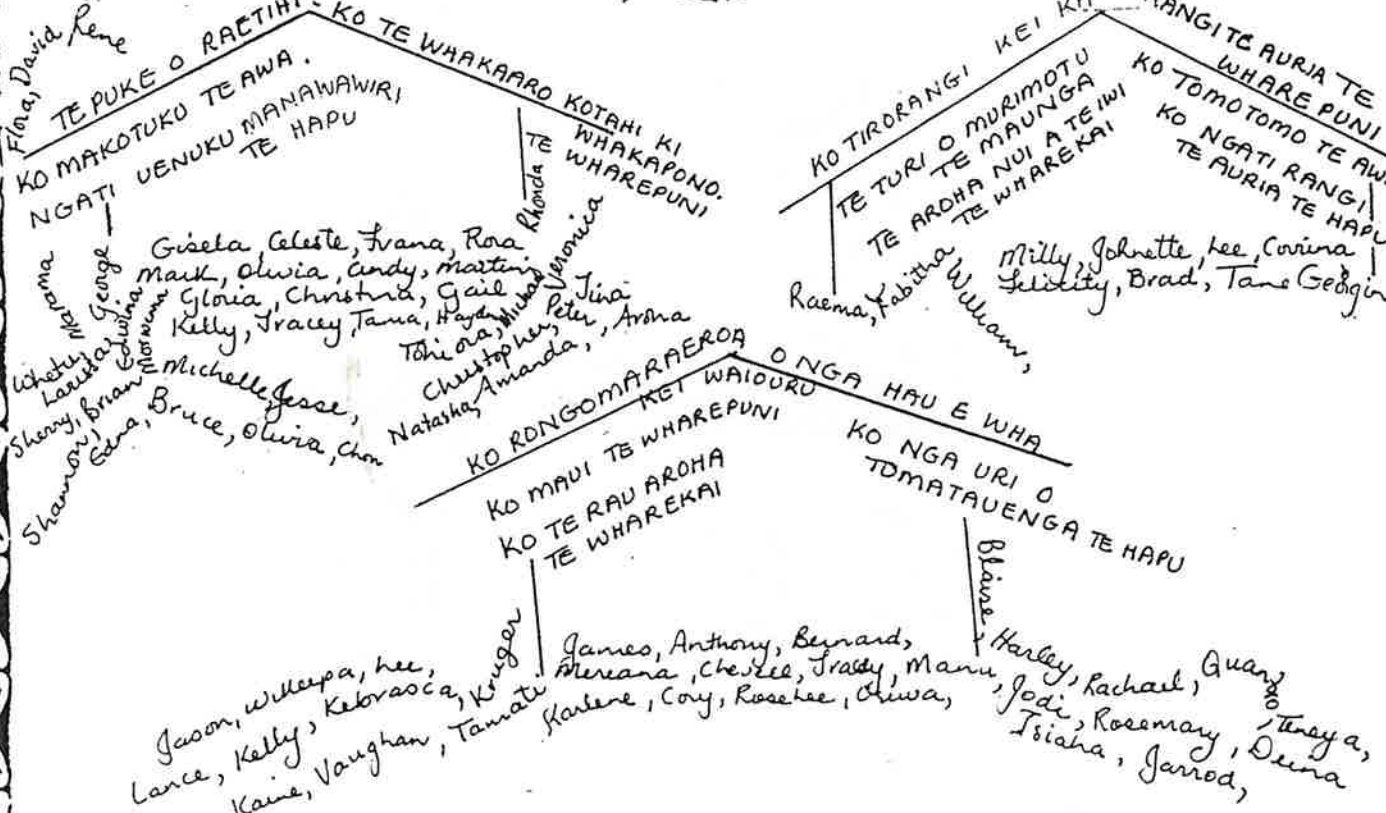 Flora, David Rene
TE PUKE O RAETIHI. KO TE WHAKAARO KOTAHI KI
TE WHAKAPONO.
TE WHAREPUNI
KO MAKOTUKU TE AWA.
NGATI UENUKU MANAWAWIRI
TE HAPU
Marama
George
Edwina
Rhonda
Veronica
Gisela, Celeste, Ivana, Rora
Mark, Olivia, Andy, Martin
Gloria, Christina, Gail
Kelly, Tracey, Tania, Hayden
Tohiora, Michael
Tina
Christopher, Peter
Natasha, Amanda, Arona
Whetu,
Sherry, Brian
Shannon,
Michelle, Jesse,
Edna, Bruce, Olivia, Chon
KO TIRORANGI KEI
RANGITE AURIA TE
WHARE PUNI
TE TURI O MURIMOTU
TE MAUNGA
TE AROHA NUI A TE IWI
TE WHAREKAI
KO TOMOTOMO TE AWA
KO NGATI RANGI
TE AURIA TE HAPU
Raema, Tabitha
William,
Milly, Johnette, Lee, Corrina
Felicity, Brad, Tane
KO RONGOMARAEROA O NGA HAU E WHA
KEI WAIOURU
KO MAUI TE WHAREPUNI
KO TE RAU AROHA
TE WHAREKAI
KO NGA URI O
TOMATAUENGA TE HAPU
Jason, Wikepa, Lee,
Lance, Kelly, Kruger
Kaine, Vaughan, Tamati
James, Anthony, Bernard,
Mereana, Tracey, Manu,
Karlene, Cory, Rosehee, Oriwa,
Blaise, Harley, Rachael,
Jodi, Rosemary,
Isiaha, Jarrod,